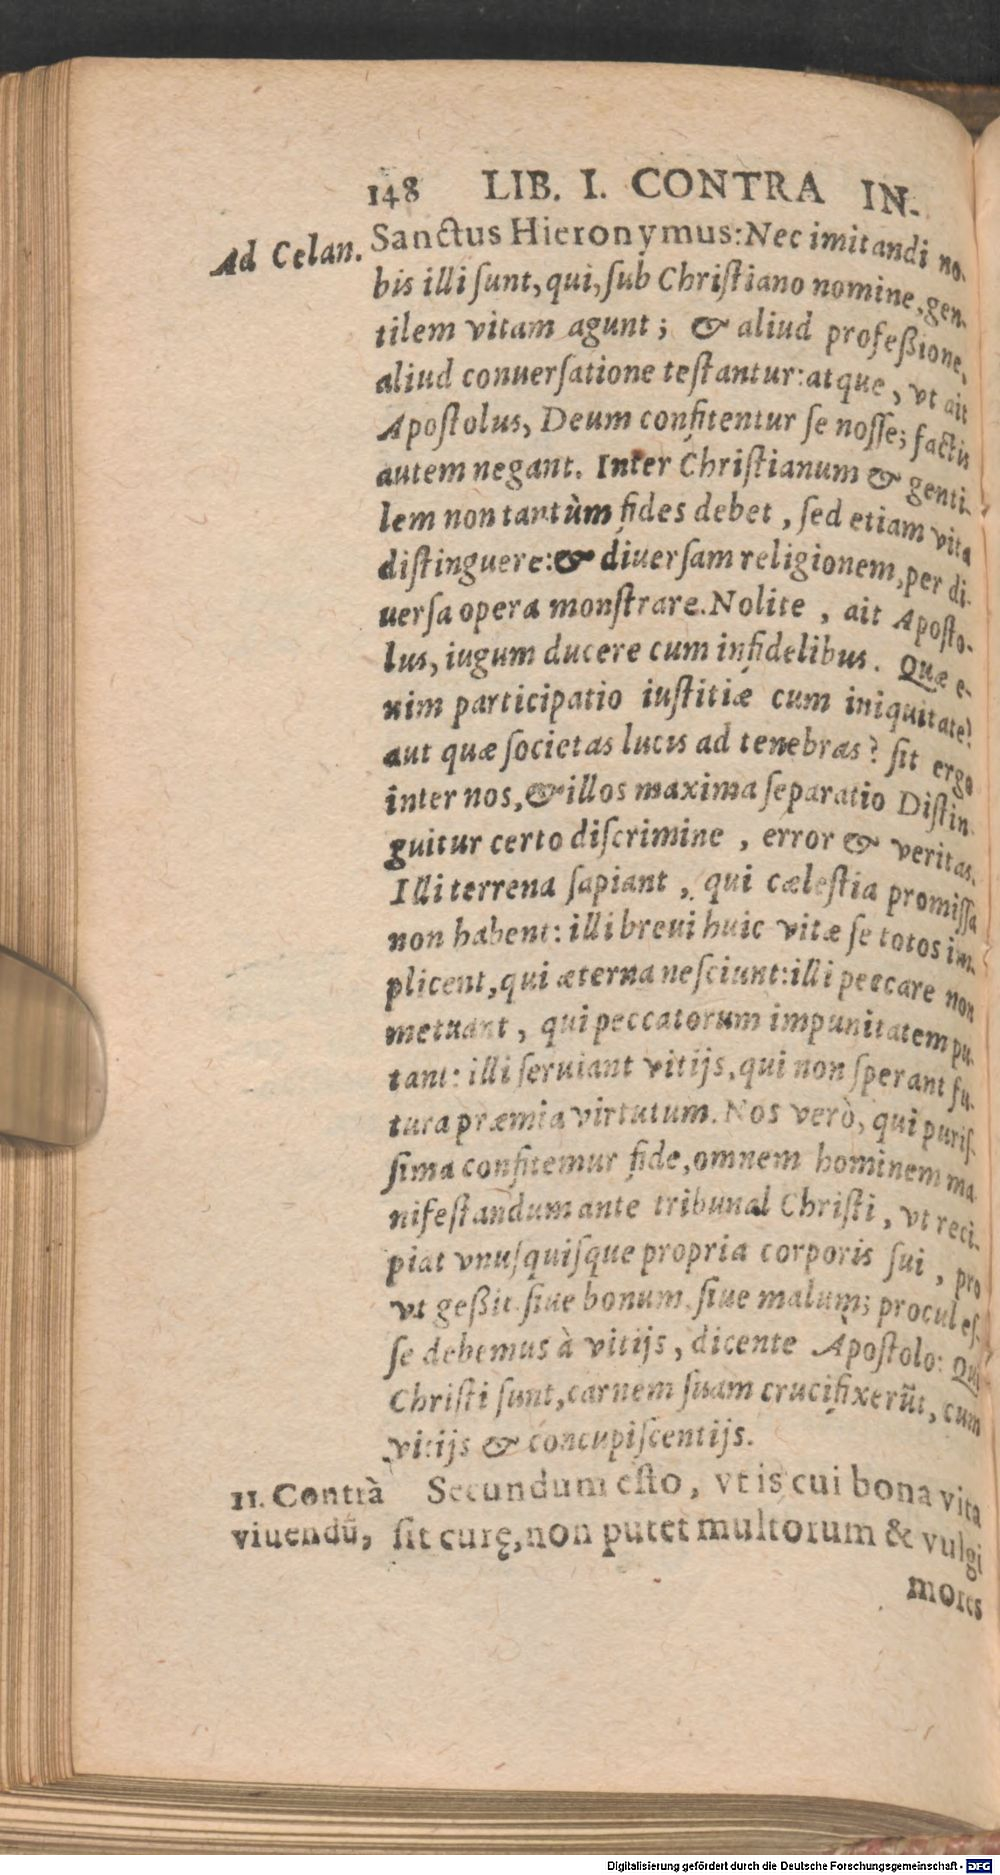 148 LIB. I. CONTRA IN-
Ad Celan.
Sanctus Hieronymus: Nec imitandi no-
bis illi ſunt, qui, ſub Chriſtiano nomine, gen-
tilem vitam agunt; & aliud profeßione,
aliud conuerſatione teſtantur: atque, vt ait
Apoſtolus, Deum confitentur ſe noſſe; factis
autem negant. Inter Chriſtianum & genti-
lem non tantùm fides debet, ſed etiam vita
diſtinguere: & diuerſam religionem, per di-
uerſa opera monſtrare. Nolite, ait Apoſto-
lus, iugum ducere cum infidelibus. Quæ e-
nim participatio iuſtitiæ cum iniquitate?
aut quæ ſocietas lucis ad tenebras? ſit ergo
inter nos, & illos maxima ſeparatio Diſtin-
guitur certo diſcrimine, error & veritas.
Illi terrena ſapiant, qui cæleſtia promiſſa
non habent: illi breui huic vitæ ſe totos im-
plicent, qui æterna neſciunt: illi peccare non
metuant, qui peccatorum impunitatem pu-
tant: illi ſeruiant vitijs, qui non ſperant fu-
tura præmia virtutum. Nos verò, qui puriſ-
ſima confitemur fide, omnem hominem ma-
nifeſtandum ante tribunal Chriſti, vt reci-
piat vnuſquiſque propria corporis ſui, pro
vt geßit. ſiue bonum, ſiue malum; procul eſ-
ſe debemus à vitijs, dicente Apoſtolo: Qui
Chriſti ſunt, carnem ſuam crucifixerũt, cum
vitijs & concupiſcentijs.
II. Contrà
viuendũ,
Secundum eſto, vt is cui bona vita
ſit curę, non putet multorum & vulgi
mores
Digitalisierung gefördert durch die Deutsche Forschungsgemeinschaft - DFG